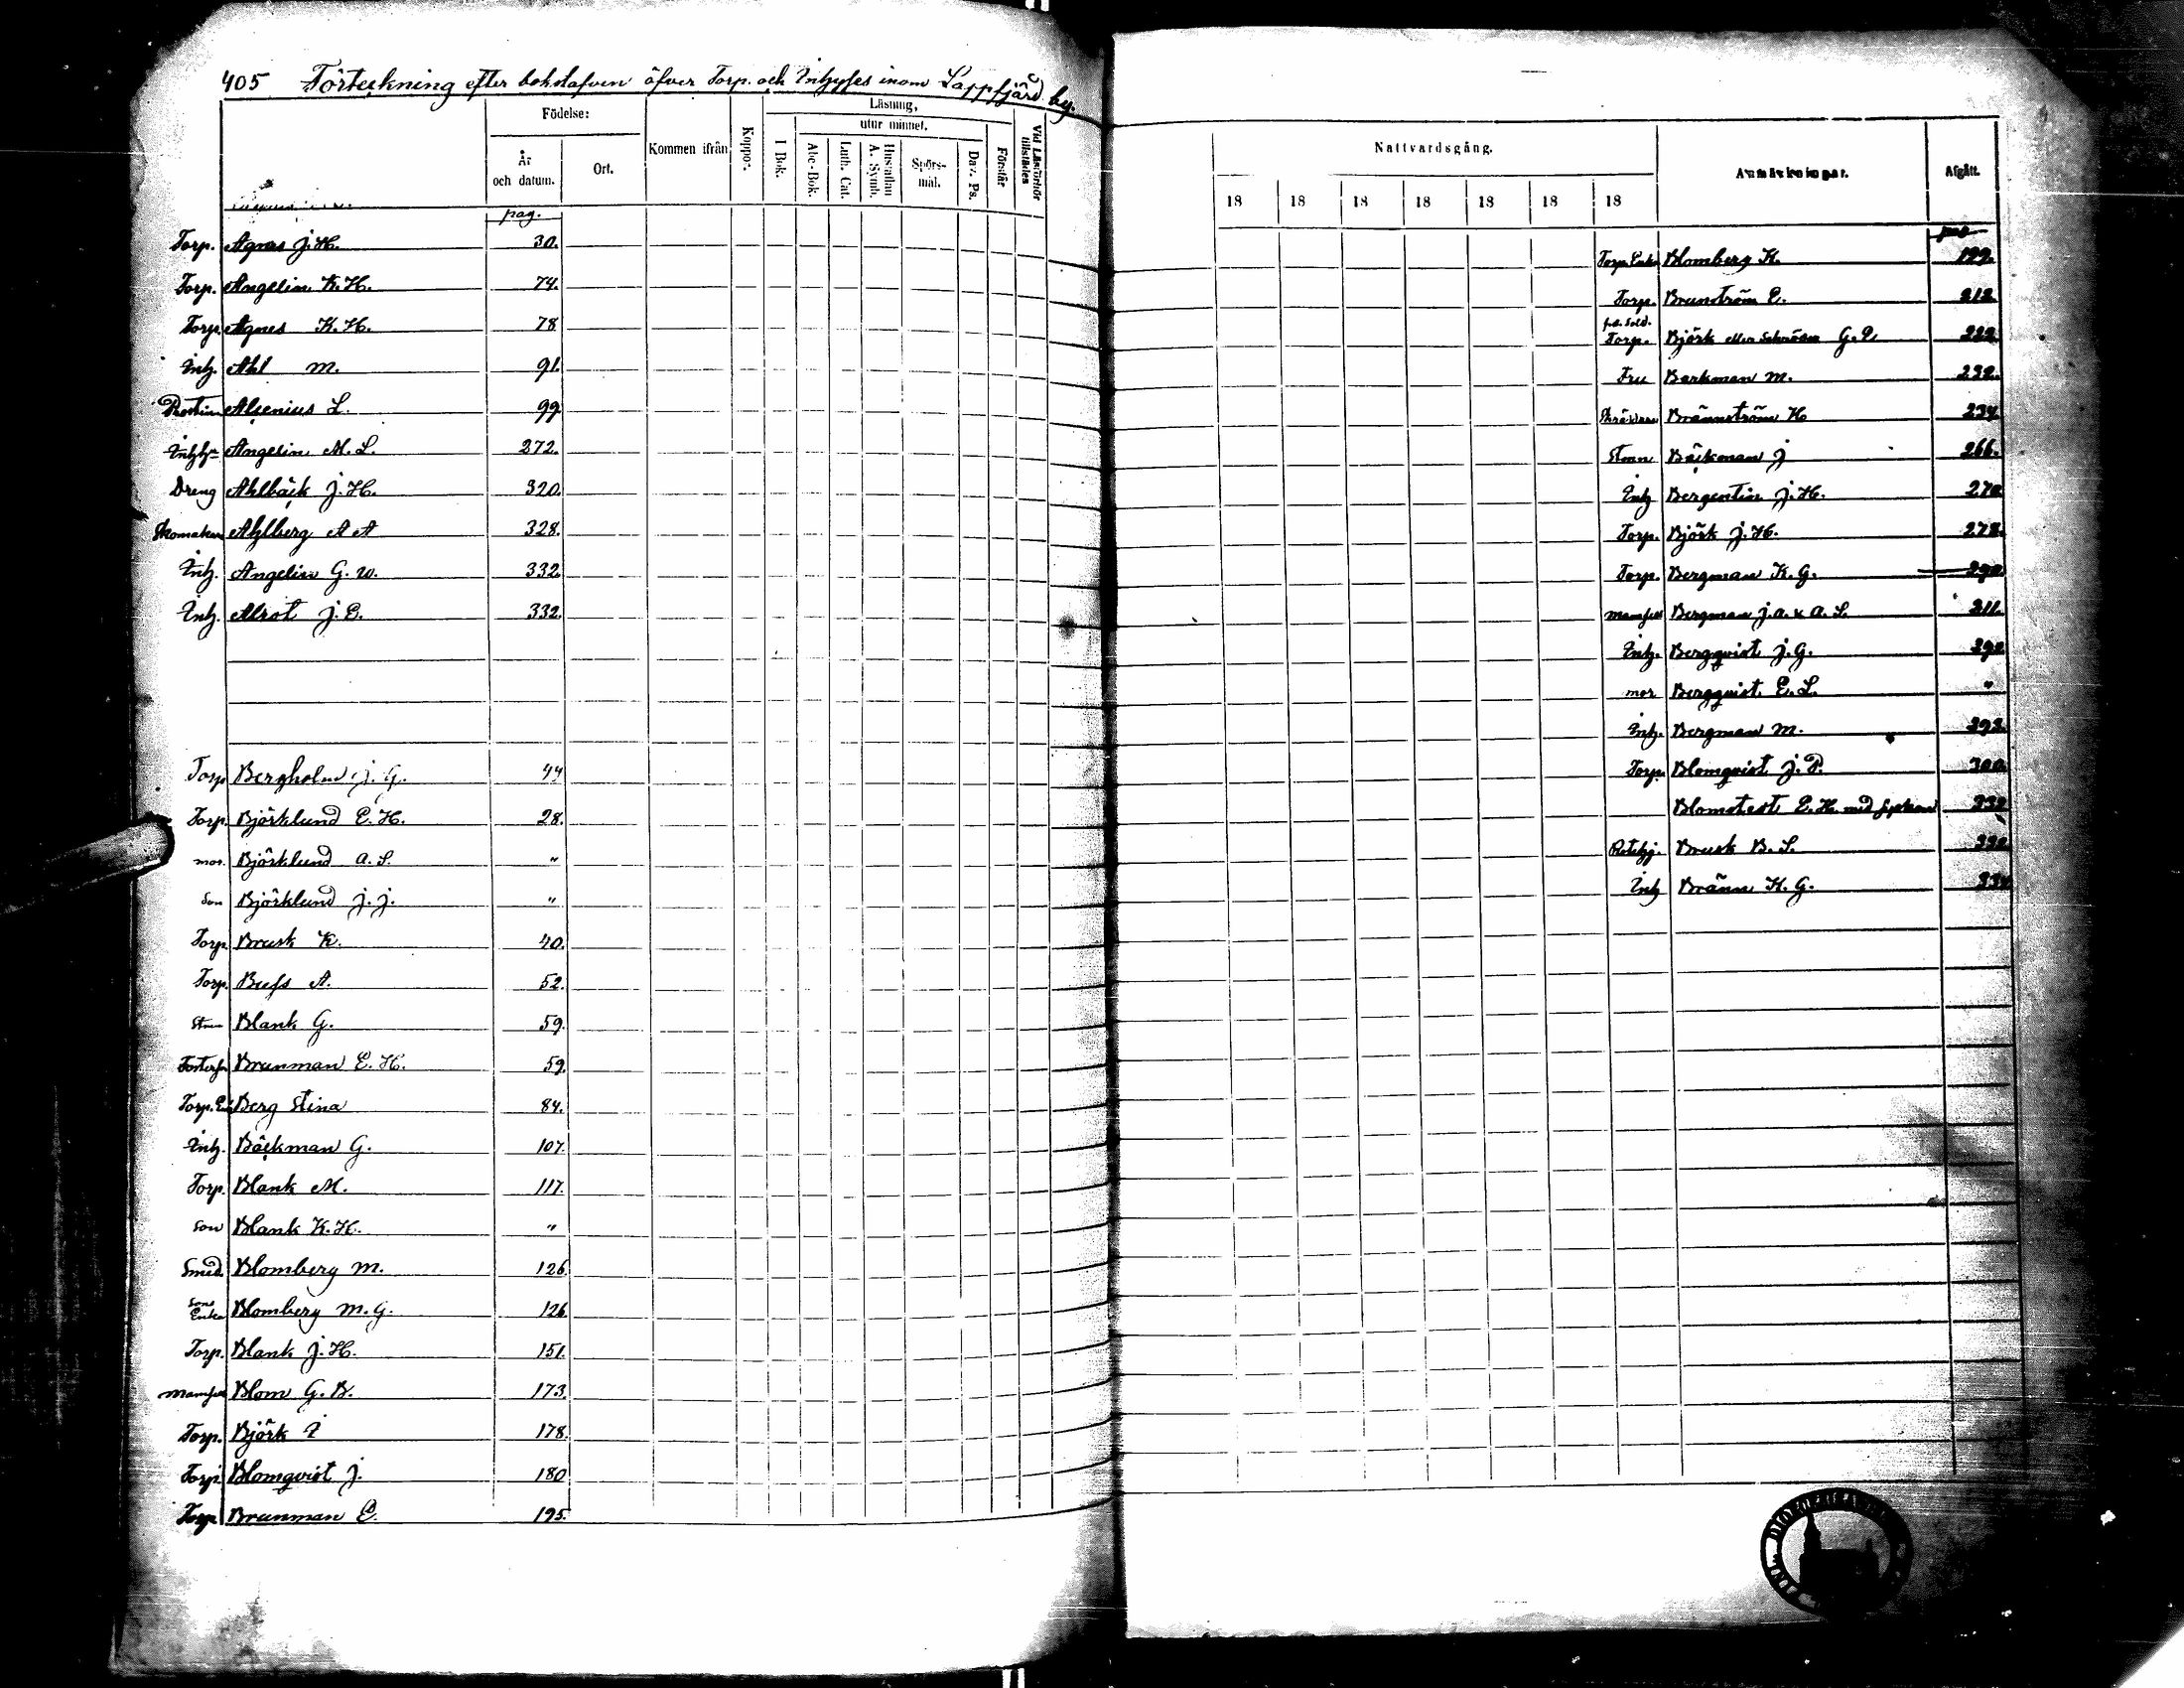 405 Förteckning efter bokstafven öfver Torp. och Inhyses inom Lappfjärd by.
Födelse:
År och datum.
Ort.
Kommen ifrån
Koppor.
Läsning,
I Bok.
utur minnet.
Abc-Bok.
Luth. Cat.
Hustaflan A. Symb.
Spörs-mål.
Dav. Ps.
Förstår
Vid Läsförhör tillstädes
pag.
Torp. Agnes J. H. 30.
Torp. Angelin K. H. 74.
Torp. Agnes K. H. 78
Inh. Ahl M. 91.
Alcenius L. 99
Angelin M. L. 272.
Dreng Ahlbäck J. H. 320.
Skomakare Ahlberg A A 328.
Inh. Angelin G. W. 332.
Inh. Alrot J. E. 332.
Torp Bergholm J. G. 44
Torp. Björklund E. H. 28.
mor. Björklund A. S. "
Son Björklund J. J. "
Torp. Brusk K. 40.
Torp. Bufs A. 52.
Blank G. 59.
Brunman E. H. 59.
Torp. Enk Berg Stina 84.
Inh. Bäckman G. 107.
Torp. Blank M. 117.
Son Blank K. H. "
Smed. Blomberg M. 126.
Sons Enka Blomberg M. G. 126.
Torp. Blank J. H. 151.
Mamsell Blom G. B. 173.
Torp. Björk 178.
Torp. Blomqvist J. 180
Torp Brunman E. 195.
Nattvardsgång.
Anmärkningar.
Afgått.
18 18 18 18 18 18 18
Torp. Enka Blomberg K. 199.
Torp. Brunström E. 212.
Torp. Björk eller Schröder G. E. 222.
Fru Barkman M. 232.
Skräddare Brännström H 234.
Bäckman J 266.
Inh Bergentin J. H. 270
Torp. Björk J. H. 278.
Torp. Bergman K. G. 290
Mamsell Bergman J. A. & A. S. 211.
Inh. Bergqvist J. G. 290
mor Bergqvist E. L. "
Inh. Bergman M. 293.
Torp. Blomqvist J. P. 300.
Blomstedt E. H. med 332
Brusk B. S. 330
Inh Bränn K. G. 334